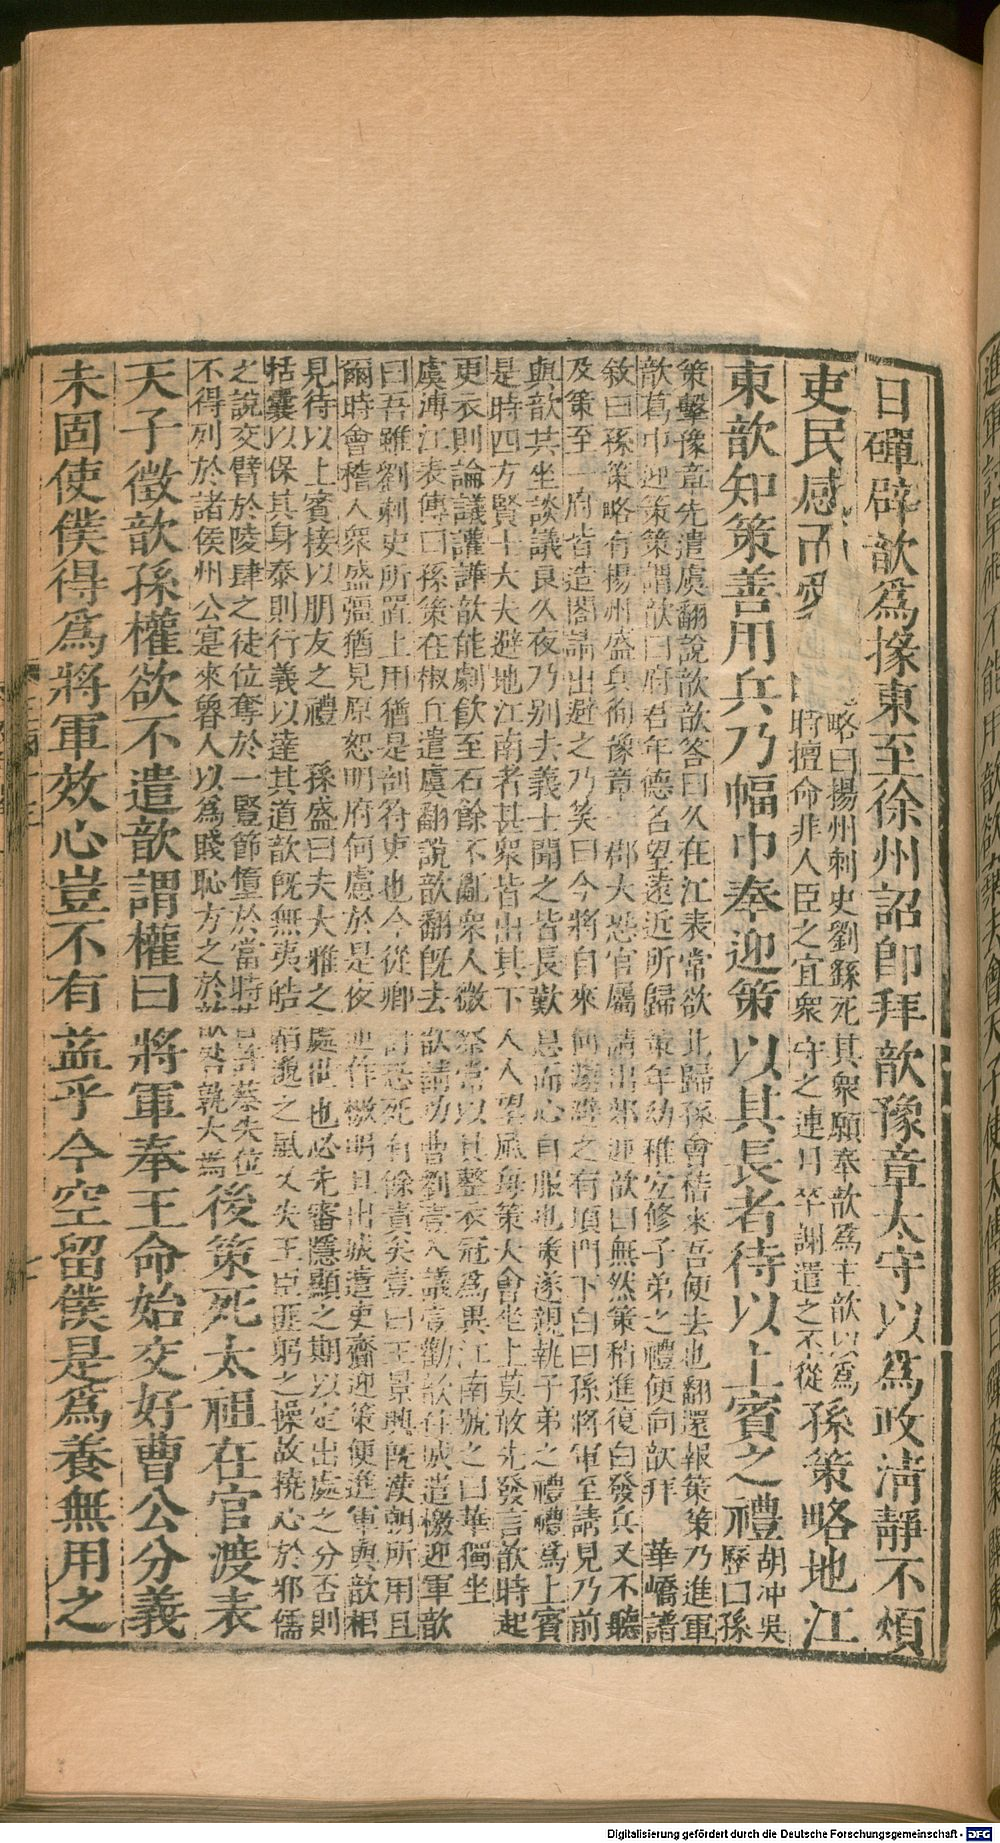 日磾辟歆爲掾東至徐州詔卽拜歆豫章太守以爲政淸靜不煩
吏民感而愛
略曰揚州刺史劉繇死其衆願奉歆爲主歆以爲
時擅命非人臣之宜衆守之連月卒謝遣之不從
孫策略地江
東歆知策善用兵乃幅巾奉迎策以其長者待以上賓之禮
胡冲吳
歷曰孫
策擊豫章先遣虞翻說歆歆答曰久在江表常欲北歸孫會稽來吾便去也翻還報策策乃進軍
歆葛巾迎策策謂歆曰府君年德名望遠近所歸策年幼稚宜修子弟之禮便向歆拜　華嶠譜
敘曰孫策略有揚州盛兵徇豫章一郡大恐官屬請出郊迎歆曰無然策稍進復白發兵又不聽
及策至一府皆造閤請出避之乃笑曰今將自來何遽避之有頃門下白曰孫將軍至請見乃前
與歆共坐談議良久夜乃別去義士聞之皆長歎息而心自服也策遂親執子弟之禮禮爲上賓
是時四方賢士大夫避地江南者甚衆皆出其下人人望風每策大會坐上莫敢先發言歆時起
更衣則論議讙譁歆能劇飲至石餘不亂衆人微察常以其整衣冠爲異江南號之曰華獨坐
虞溥江表傳曰孫策在椒丘遣虞翻說歆翻旣去歆請功曹劉壹入議壹勸歆住城遣檄迎軍歆
曰吾雖劉刺史所置上用猶是剖符吏也今從卿計恐死有餘責矣壹曰王景興旣漢朝所用且
爾時會稽人衆盛彊猶見原恕明府何慮於是夜逆作檄明旦出城遣吏齎迎策便進軍與歆相
見待以上賓接以朋友之禮　孫盛曰夫大雅之處世也必先審隱顯之期以定出處之分否則
括囊以保其身泰則行義以達其道歆旣無夷皓韜邈之風又失王臣匪躬之操故撓心於邪儒
之說交臂於陵肆之徒位奪於一豎節墮於當時昔許蔡失位
不得列於諸侯州公寔來魯人以爲賤恥方之於歆咎孰大焉
後策死太祖在官渡表
天子徵歆孫權欲不遣歆謂權曰將軍奉王命始交好曹公分義
未固使僕得爲將軍效心豈不有益乎今空留僕是爲養無用之
Digitalisierung gefördert durch die Deutsche Forschungsgemeinschaft - DFG